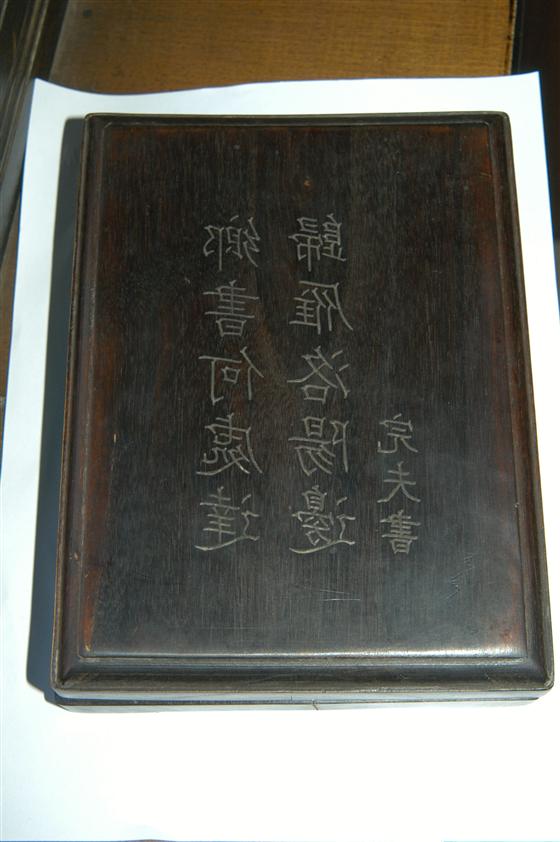 鄉書何處達
歸雁洛陽邊
完夫書